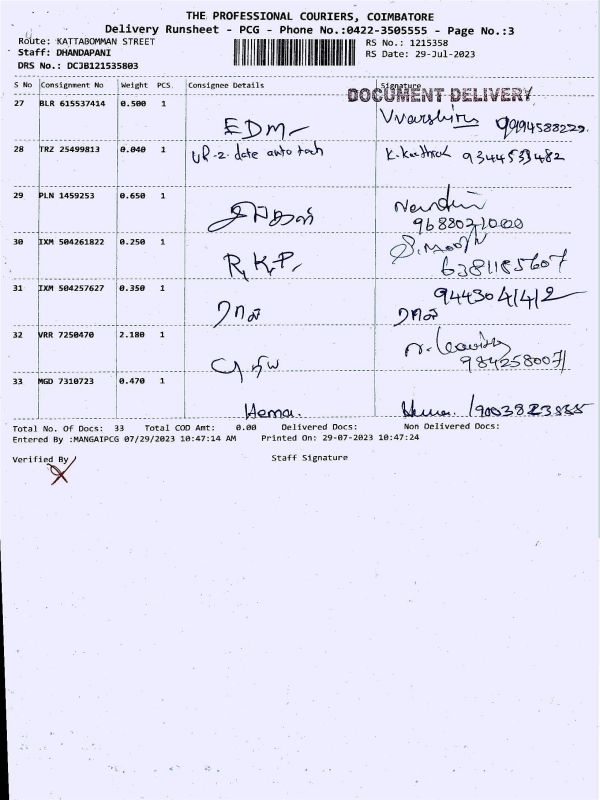 THE PROFESSIONAL COURIERS, COIMBATORE
Delivery Runsheet - PCG - Phone No.:0422-3505555 - Page No.:3
Route: KATTABOMMAN STREET
RS No.: 1215358
Staff: DHANDAPANI
RS Date: 29-Jul-2023
DRS No.: DCJB121535803
S No Consignment No Weight PCS Consignee Details Signature
DOCUMENT DELIVERY
27 BLR 615537414 0.500 1
EDM
28 TRZ 25499813 0.040 1 date auto tech K. Karthick 9344533482
29 PLN 1459253 0.650 1
9688021000
30 IXM 504261822 0.250 1
R.K.P. 6381185607
31 IXM 504257627 0.350 1 9443041412
ராஜ் ராஜ்
32 VRR 7250470 2.180 1
9842580071
33 MGD 7310723 0.470 1
Hema. Hema.
Total No. Of Docs: 33 Total COD Amt: 0.00 Delivered Docs: Non Delivered Docs:
Entered By :MANGAIPCG 07/29/2023 10:47:14 AM Printed On: 29-07-2023 10:47:24
Verified By Staff Signature